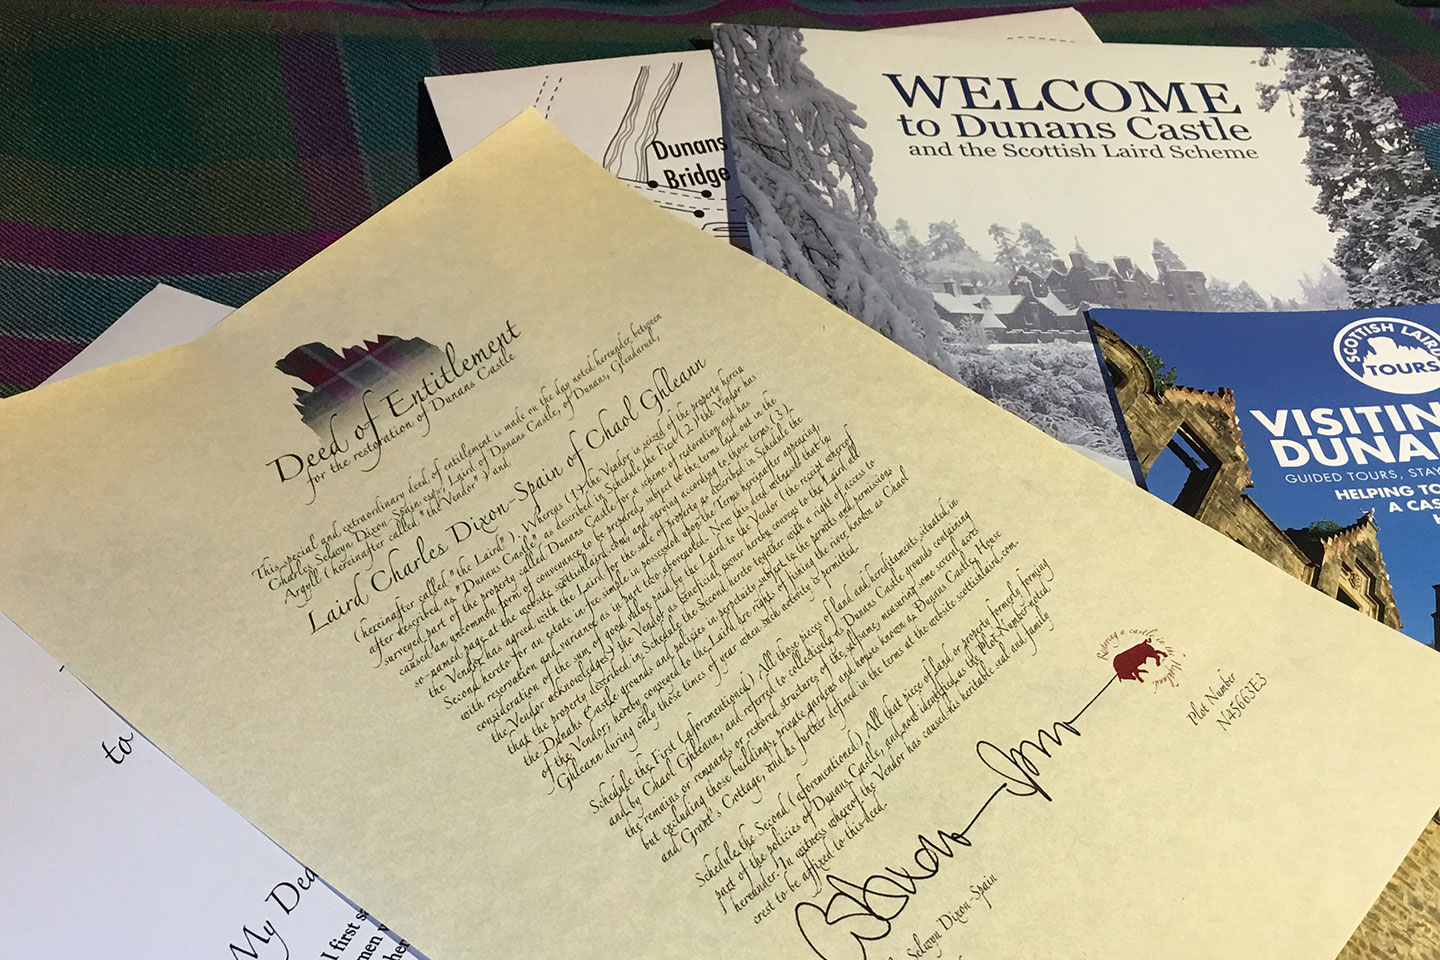 Dunans
Bridge
WELCOME
to Dunans Castle
and the Scottish Laird Scheme
SCOTTISH LAIRD
TOURS
VISITIN
DUNA
GUIDED TOURS, STAY
HELPING TO
A CAS
Deed of Entitlement
for the restoration of Dunans Castle
This special and extraordinary deed of entitlement is made on the day noted hereunder, between
Charles Selwyn Dixon-Spain esq., Laird of Dunans Castle, of Dunans, Glendaruel,
Argyll (hereinafter called "the Vendor") and
Laird Charles Dixon-Spain of Chaol Ghleann
(hereinafter called "the Laird"). Whereas (1) the Vendor is seized of the property herein
after described as "Dunans Castle" as described in Schedule the First (2) the Vendor has
surveyed part of the property called Dunans Castle for a scheme of restoration and has
caused an uncommon form of conveyance to be prepared subject to the terms laid out in the
so-named page at the website scottishlaird.com, and various according to those terms. (3)
the Vendor has agreed with the Laird for the sale of property as described in Schedule the
Second hereto for an estate in fee simple in possession upon the Terms hereinafter appearing,
with reservation and variance as in part two aforenoted. Now this deed witnesses that in
consideration of the sum of good value paid by the Laird to the Vendor (the receipt whereof
the Vendor acknowledges) the Vendor as beneficial power hereby conveys to the Laird all
that the property described in Schedule the Second hereto together with a right of access to
the Dunans Castle grounds and policies in perpetuity subject to the permits and permissions
of the Vendor; hereby conveyed to the Laird are rights of fishing the river known as Chaol
Ghleann during only those times of year when such activity is permitted.
Schedule the First (aforementioned) All those pieces of land and hereditaments situated in
and by Chaol Ghleann, and referred to collectively as Dunans Castle grounds containing
the remains or remnants or restored structures of the same, measuring some several acres
but excluding those buildings, private gardens and houses known as Dunans Castle House
and Grant's Cottage, and as further defined in the terms at the website scottishlaird.com.
Schedule the Second (aforementioned) All that piece of land or property formerly forming
part of the policies of Dunans Castle, and now identified as the Plot Number noted
hereunder. In witness whereof the Vendor has caused his heritable seal and family
crest to be affixed to this deed.
Restoring a castle in
Plot Number
N45663E3
Selwyn Dixon-Spain
to
My Dea
first s